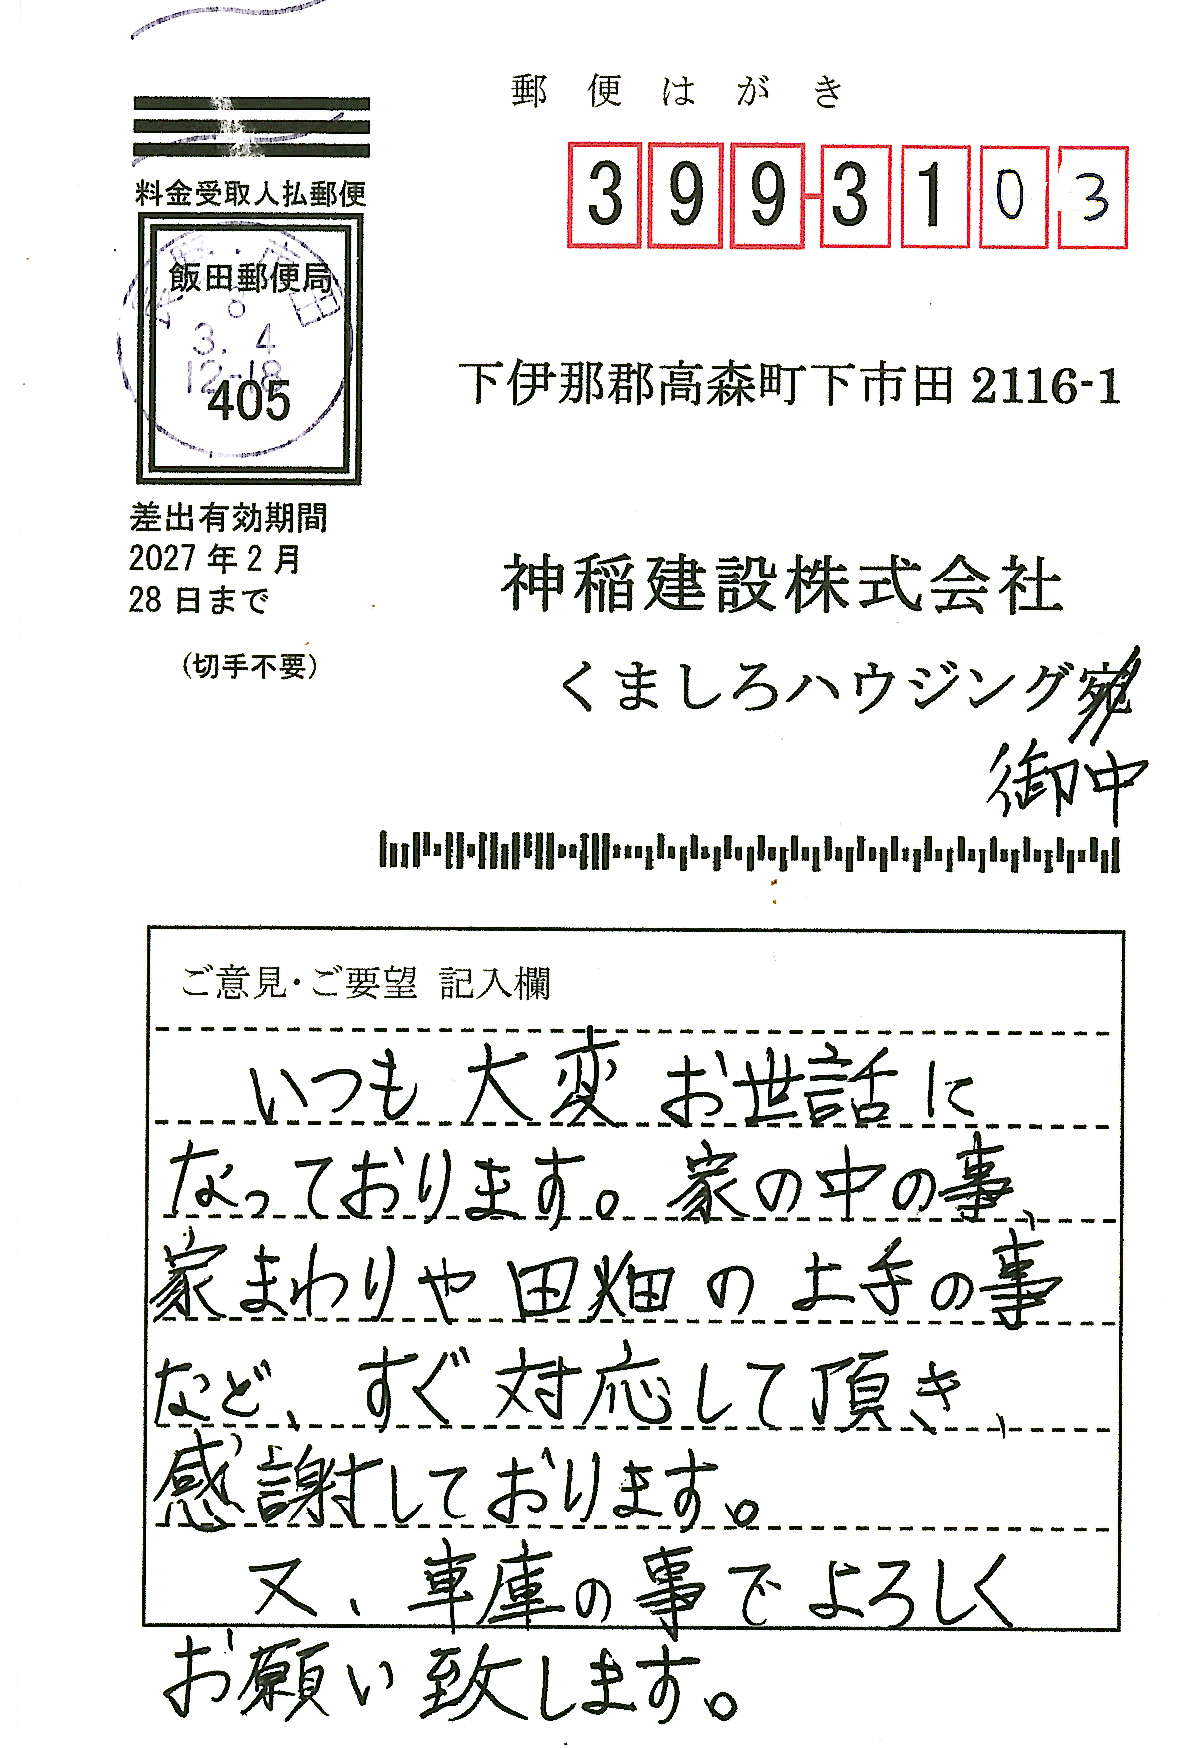 郵便はがき
料金受取人払郵便
飯田郵便局
8
3. 4
12-18
405
差出有効期間
2027年2月
28日まで
(切手不要)
399-3103
下伊那郡高森町下市田2116-1
神稲建設株式会社
くましろハウジング宛
御中
ご意見・ご要望 記入欄
いつも大変お世話に
なっております。家の中の事、
家まわりや田畑の土手の事
など、すぐ対応して頂き、
感謝しております。
又、車庫の事でよろしく
お願い致します。